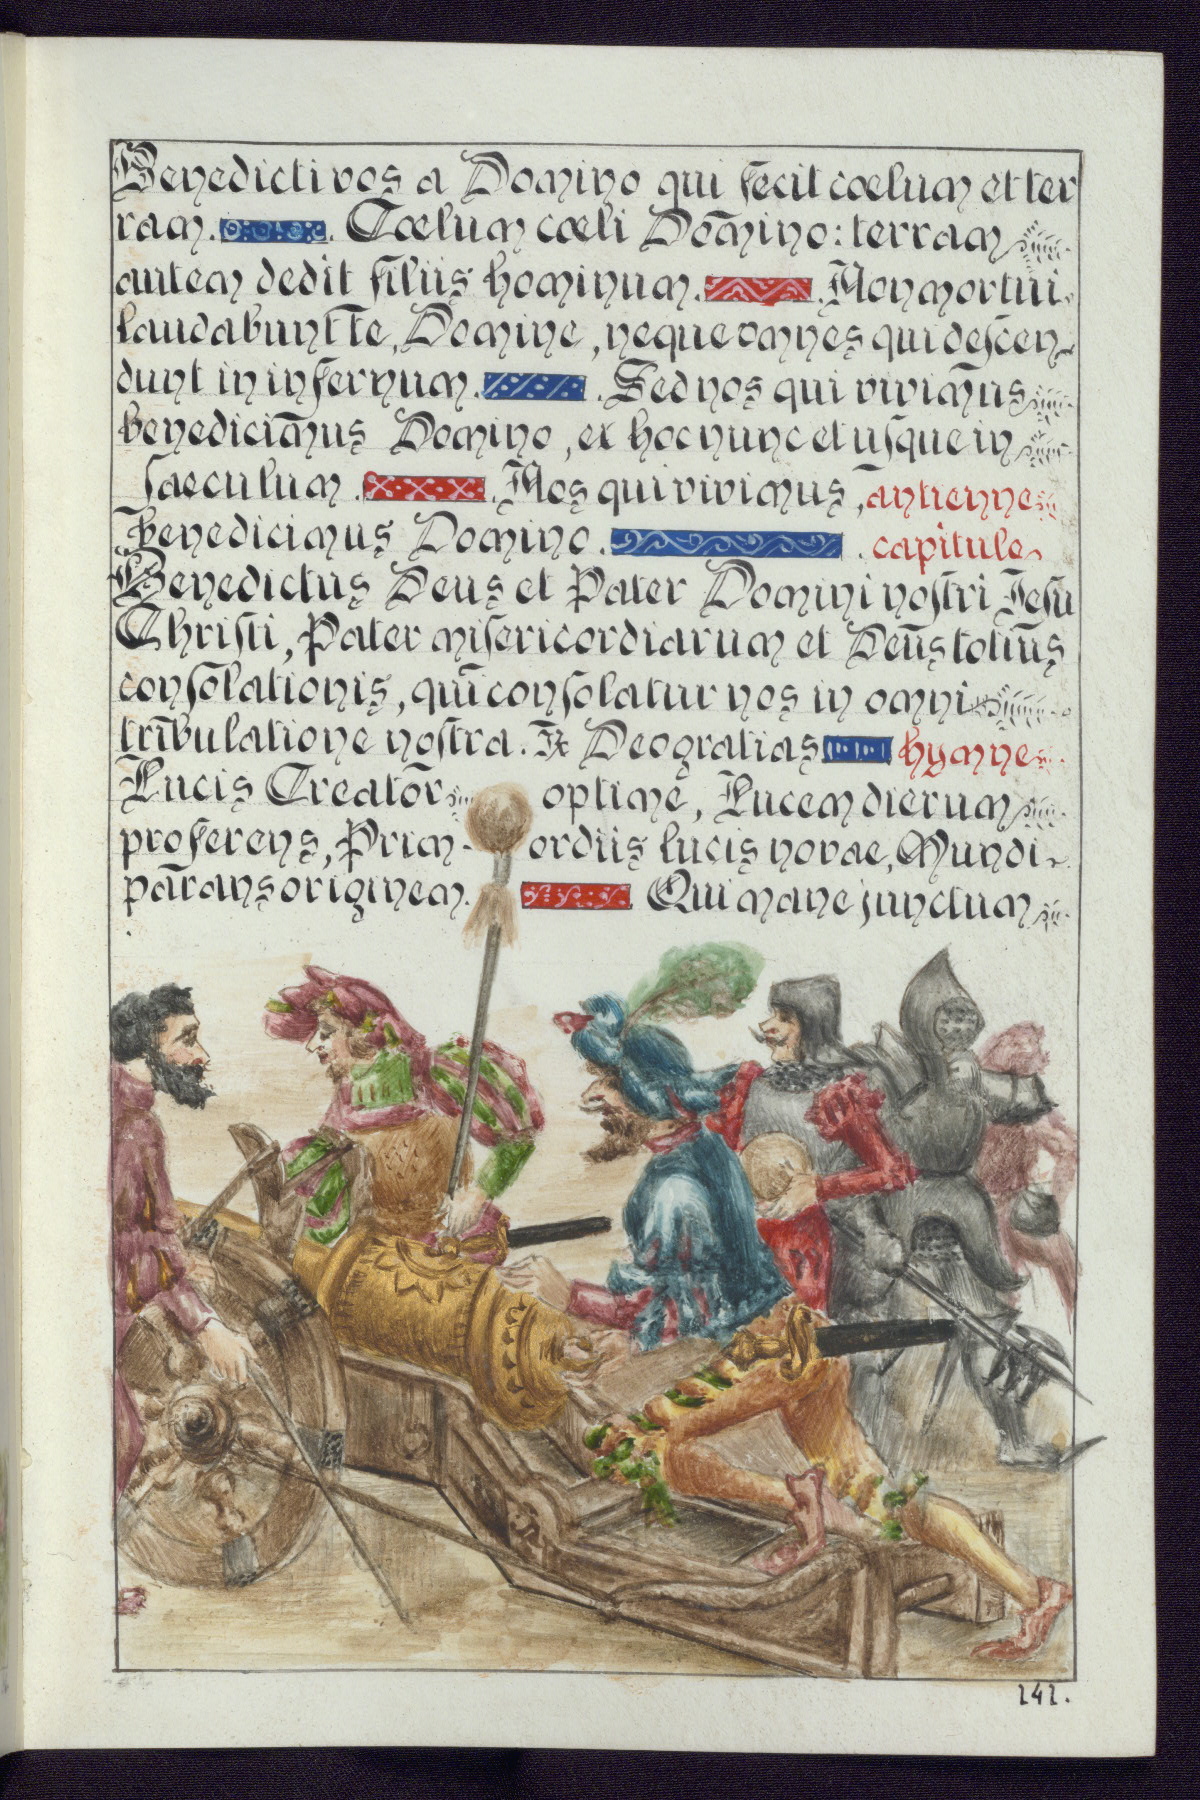 Benedicti vos a Domino qui fecit cœlum et ter
ram. Cœlum cœli Domino: terram
autem dedit filiis hominum. Non mortui
laudabunt te, Domine, neque omnes qui descen
dunt in infernum. Sed nos qui vivimus
benedicimus Domino, ex hoc nunc et usque in
saeculum. Nos qui vivimus, antienne
Benedicimus Domino. capitule
Benedictus Deus et Pater Domini nostri Jesu
Christi, Pater misericordiarum et Deus totius
consolationis, qui consolatur nos in omni
tribulatione nostra. ℟ Deo gratias hymne
Lucis Creator optime, Lucem dierum
proferens, Prim-ordiis lucis novae, Mundi
parans originem. Qui mane junctum
141.